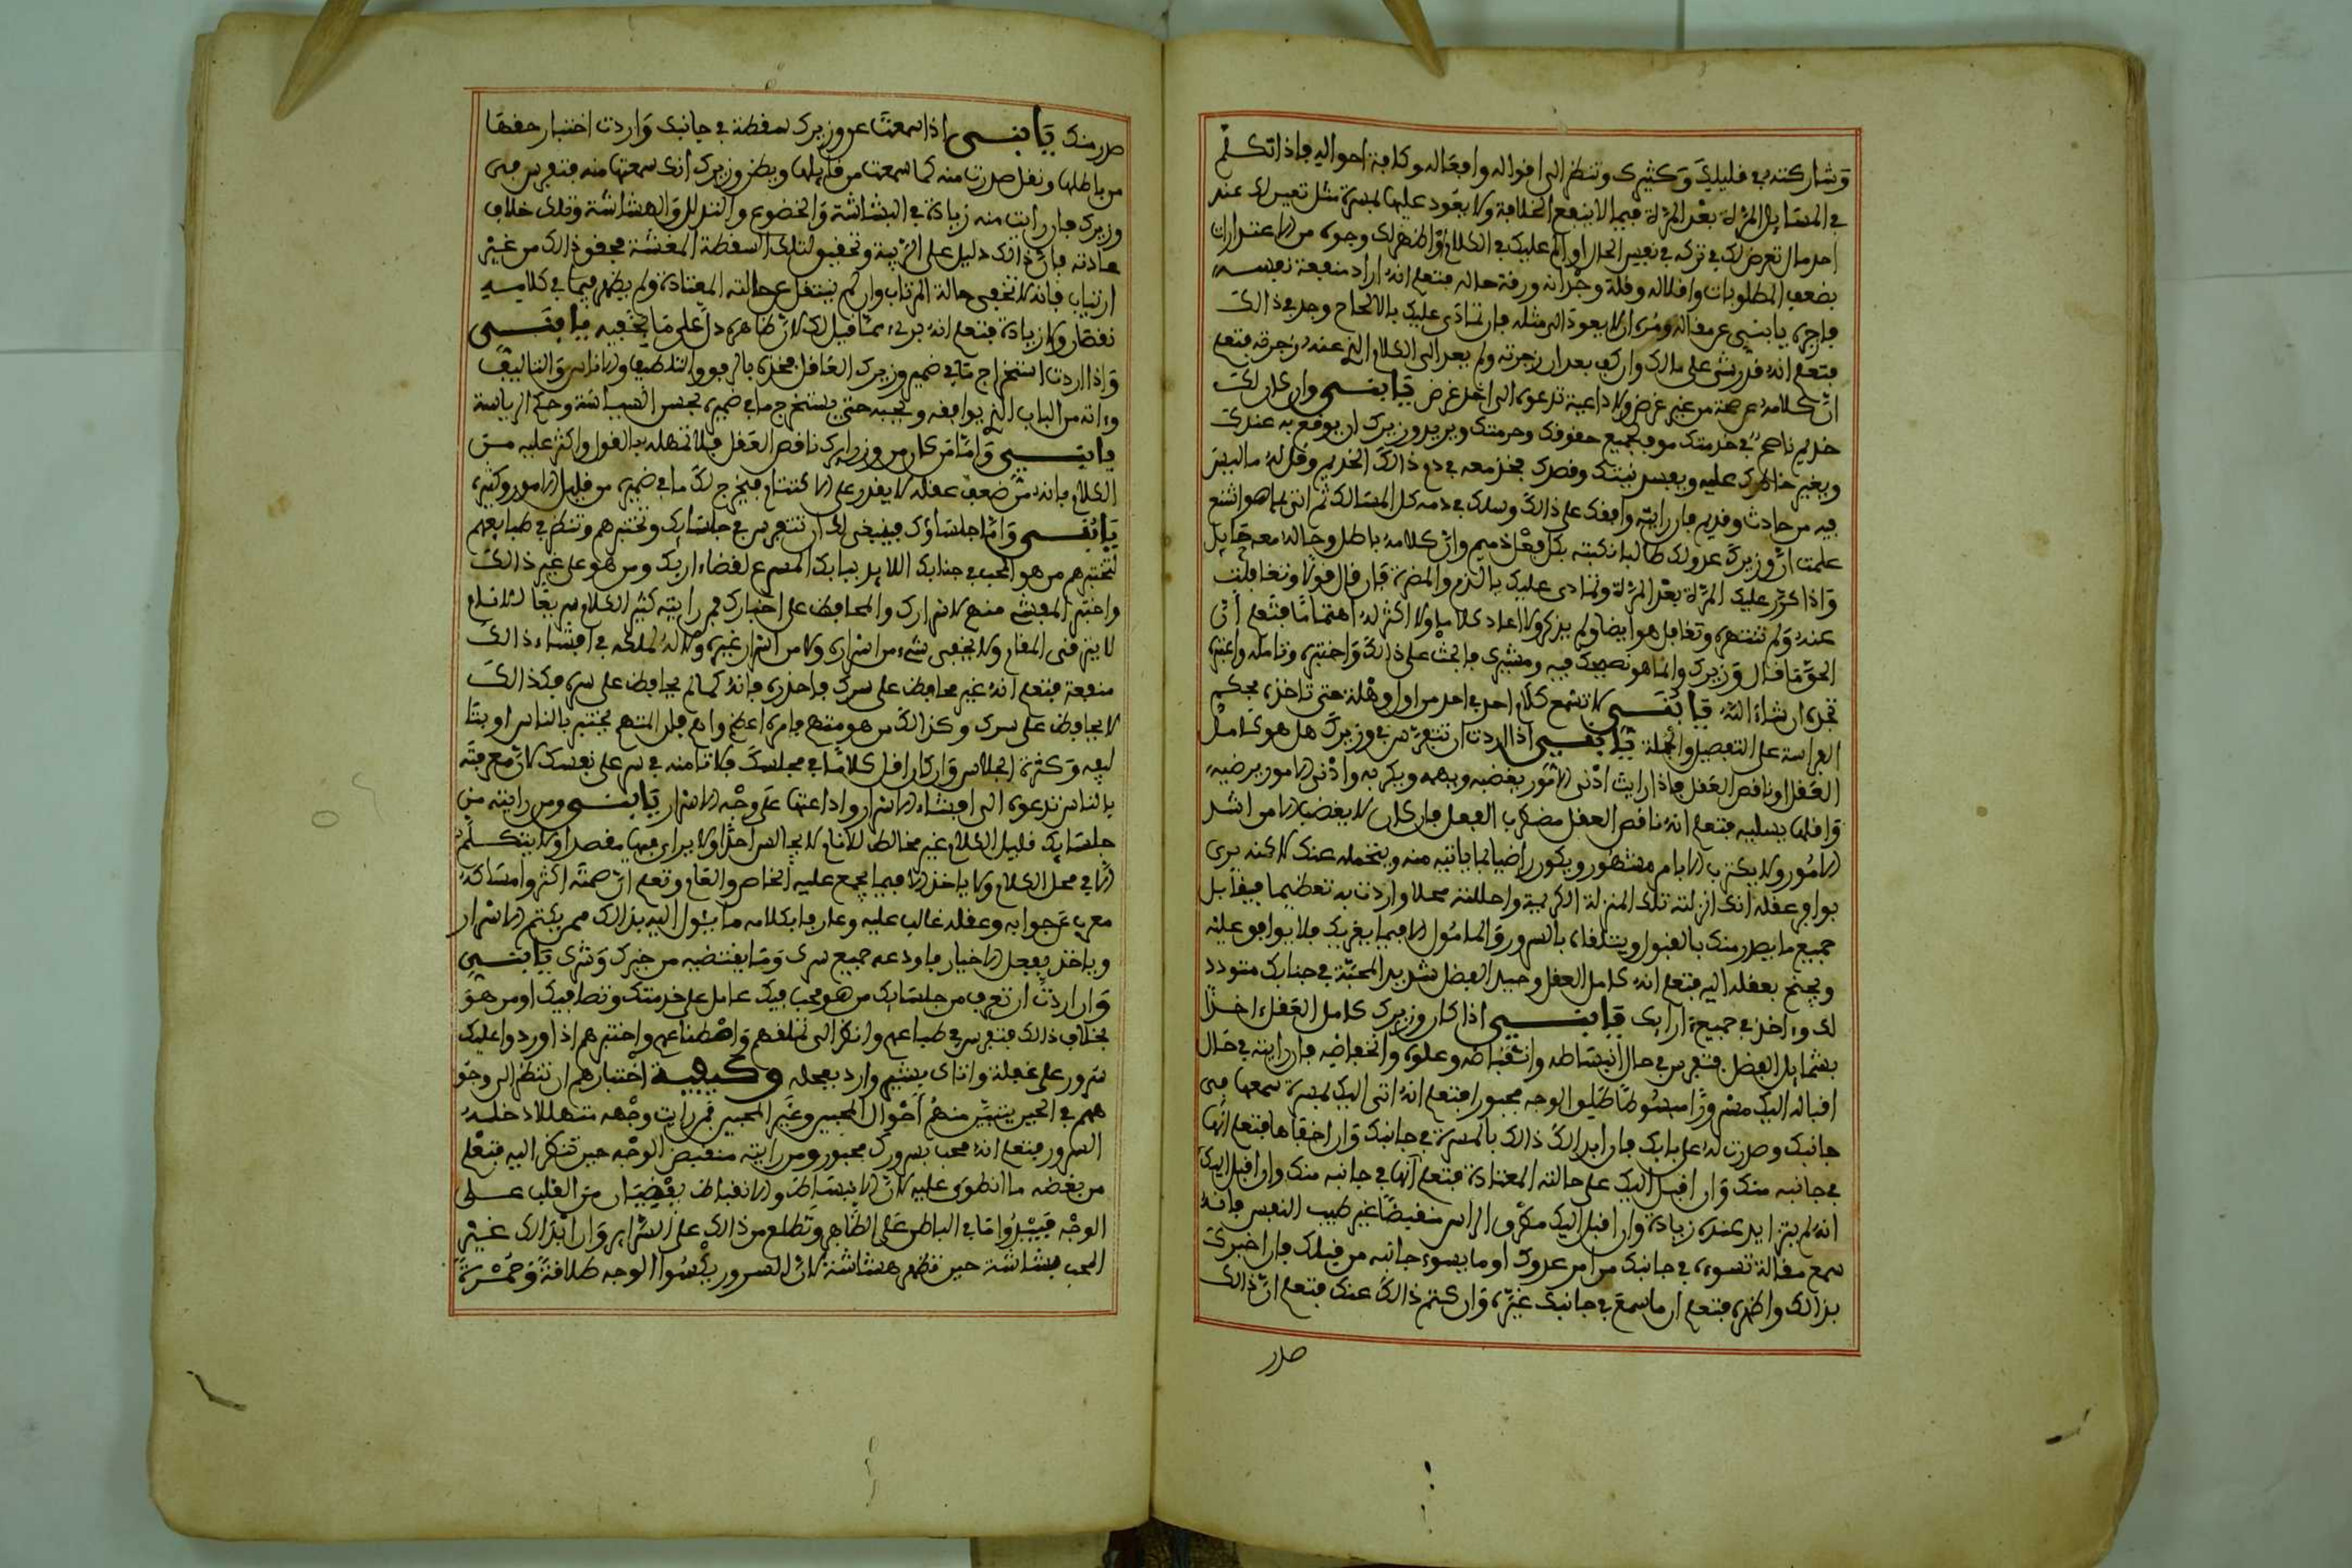 وشاركته في قليلك وكثيرك وتنظر الى اقواله وافعاله وكافة احواله فاذا تكلم
في المسائل المرة بعد المرة فيما لا ينفع الخلافة ولا يعود عليها بمسرة مثل تعيين لك عند
احد مال تعرض لك في تركه في نفس الحال او الم عليك في الكلام واظهر لك وجوه من الاعتذارات
بضعف المطلوبات واقلاله وقلة وجدانه ورقة حاله فتعلم انه اراد منفعة نفسه
فاجره يا بني عن مقاله ومره ان لا يعود الى مثله فان تمادى عليك بالالحاح وجد في ذالك
فتعلم انه قد رشي على مالك وان كف بعد ان زجرته ولم يعد الى الكلام الذي عنه زجرته فتعلم
ان كلامه عن صحة من غير غرض ولا داعية تدعوه الى اخذ غرض يا بني وان كان لك
خديم ناصح في خدمتك موف بجميع حقوقك وحرمتك ويريد وزيرك ان يوقع به عندك
ويغير خاطرك عليه ويفسد نيتك وقصدك فخذ معه في ذم ذالك الخديم وقل له ما ليس
فيه من حادث وقديم فان رايته وافقك على ذالك وسلك في ذمه كل المسالك ثم اتى بما هو اشنع
علمت ان وزيرك عدو لك طالبا نكبته بكل فعل ذميم وان كلامه باطل وحاله معه حايل
واذا كرر عليك المرة بعد المرة وتمادى عليك بالذم والمضرة فان قال قولا وتغافلت
عنه ولم تنتهره وتغافل هو ايضا ولم يذكره ولا اعاد كلاما ولا اكثر له اهتماما فتعلم ان
الحق ما قال وزيرك وانما هو نصيحك فيه ومشيرك فابحث على ذالك واختبره وتامله واعتبره
تجده ان شاء الله يا بني لا تسمع كلام احد في احد من اول وهلة حتى تاخذه بحكم
الفراسة على التفصيل والجملة يا بني اذا اردت ان تتفرس في وزيرك هل هو كامل
العقل او ناقص العقل فاذا رايت ادنى الامور يغضبه ويهمه ويكربه وادنى الامور يرضيه
واقلها يسليه فتعلم انه ناقص العقل مضطرب الفعل فان كان لا يغضب الا من اشد
الامور ولا يكترث الا بامر مشهور ويكون راضيا بما ياتيه منه ويتحمله عنك لاكنه يرى
بوافر عقله انك انزلته تلك المنزلة الكريمة واحللته محلا واردت به تعظيما فيقابل
جميع ما يصدر منك بالقبول ويتلقاه بالسرور والمامول الا فيما يغريك فلا يوافق عليه
ويجنح بعقله اليه فتعلم انه كامل العقل وحيد الفضل شديد المحبة في جنابك متودد
لك واخذ في جميع ارابك يا بني اذا كان وزيرك كامل العقل اخذا
بشمايل الفضل فتفرس في حال انبساطه وانقباضه وعلوه وانخفاضه فان رايته في حال
اقباله اليك مسرورا مبسوطا طليق الوجه محبورا فتعلم انه اتى اليك بمسرة سمعها في
جانبك وصدرت له على بابك فان ابدا لك ذالك بالمسرة في جانبك وان اخفاها فتعلم انها
في جانبه منك وان اقبل اليك على حالته المعتادة فتعلم انها في جانبه منك وان اقبل اليك
انه لم يتزايد عنده زيادة وان اقبل اليك مطرق الراس منقبضا غير طيب النفس فانه
سمع مقالة تسوءه في جانبك من امر عدوك او ما يسوء جانبه من قبلك فان اخبرك
بذالك واظهره فتعلم ان ما سمع في جانبك غيره وان كتم ذالك عنك فتعلم ان ذالك
صدر
صدر منك يا بني اذا سمعت عن وزيرك سقطة في جانبك واردت اختبار حقها
من باطلها ونقل صدرت منه كما سمعت من قايلها ويظن وزيرك انك سمعتها منه فتفرس في
وزيرك فان رايت منه زيادة في البشاشة والخضوع والتذلل والهشاشة وتلك خلاف
عادته فان ذالك دليل على الريبة وتحقيق لتلك السقطة المغشة فحقق ذالك من غير
ارتياب فانه لا تخفى حالة المرتاب وان لم ينتقل عن حالته المعتادة ولم يظهر فيما في كلامه
نقصان ولا زيادة فتعلم انه برئ مما قيل لك لان ظاهره دل على ما يخفيه يا بني
واذا اردت استخراج ما في ضمير وزيرك العاقل فخذه بالرفق والتلطيف والايناس والتاليف
واته من الباب الذي يوافقه ويحبه حتى يستخرج ما في ضميره بحسن السياسة وحكم الرياسة
يا بني واما من كان من وزرايك ناقص العقل فلا تمهله بالقول واكثر عليه من
الكلام فانه من ضعف عقله لا يقدر على الاكتتام فيخرج لك ما في ضميره من قليل الامور وكثيره
يا بني واما جلساؤك فينبغي لك ان تتفرس في جلسايك وتختبرهم وتنظر في طبايعهم
لتختبرهم من هو المحب في جنابك اللايذ ببابك المسرع لقضاء اربك ومن هو على غير ذالك
واختبر المفشي منهم لاسرارك والمحافظ على اخبارك فمن رايته كثير الكلام سريعا للانام
لا يتزقى المقام ولا يخفي شيء من اسراره ولا من اسرار غيره ولا له لملكه في افشاء ذالك
منفعة فتعلم انه غير محافظ على سرك فاحذره فانه كما لم يحافظ على سره فكذالك
لا يحافظ على سرك وكذالك من هو متهم فامره اعظم واهم فان المتهم يختبر بالناس او بتا
ليفه وكثرة الجلاس وان كان اقل كلاما في مجلسك فلا تامنه في سر على نفسك لان معرفته
بالناس تدعوه الى افشاء الاسرار واذاعتها على وجه الاسرار يا بني ومن رايته من
جلسايك قليل الكلام غير مخالط للانام لا يجالس احدا ولا يرا له فيها مقصدا ولا يتكلم
الا في محل الكلام ولا ياخذ الا فيما يجمع عليه الخاص والعام وتعلم ان صمته اكثر وامساكه
معرب عن جوابه وعقله غالب عليه وعارفا بكلامه ما يئول اليه بذالك ممن يكتم الاسرار
وياخذ بفعل الاخيار فاودعه جميع سرك وما يقتضيه من خيرك وشرك يا بني
وان اردت ان تعرف من جلسايك من هو محب فيك عامل على خدمتك ونصافيك او من هو
بخلاف ذالك فتفرس في طباعهم وانظر الى تملقهم واصطناعهم واختبرهم اذا اوردوا عليك
سرور على غفلة واتاك بشير وارد بعجله وكيفية اختبارهم ان تنظر الى وجو
ههم في الحين يتبين منهم احوال المحبين وغير المحبين فمن رايت وجهه متهللا دخله
السرور فتعلم انه محب بسرورك محبور ومن رايته منقبض الوجه حين تنظر اليه فتعلم
من بغضه ما انطوى عليه لان الانبساط والانقباض يفيضان من القلب على
الوجه فيبدوا ما في الباطن على الظاهر وتطلع من ذالك على السراير وان ابدا لك غير
المحب بشاشة حين تظهر هشاشة لان السرور يكسوا الوجه طلاقة وحمرة